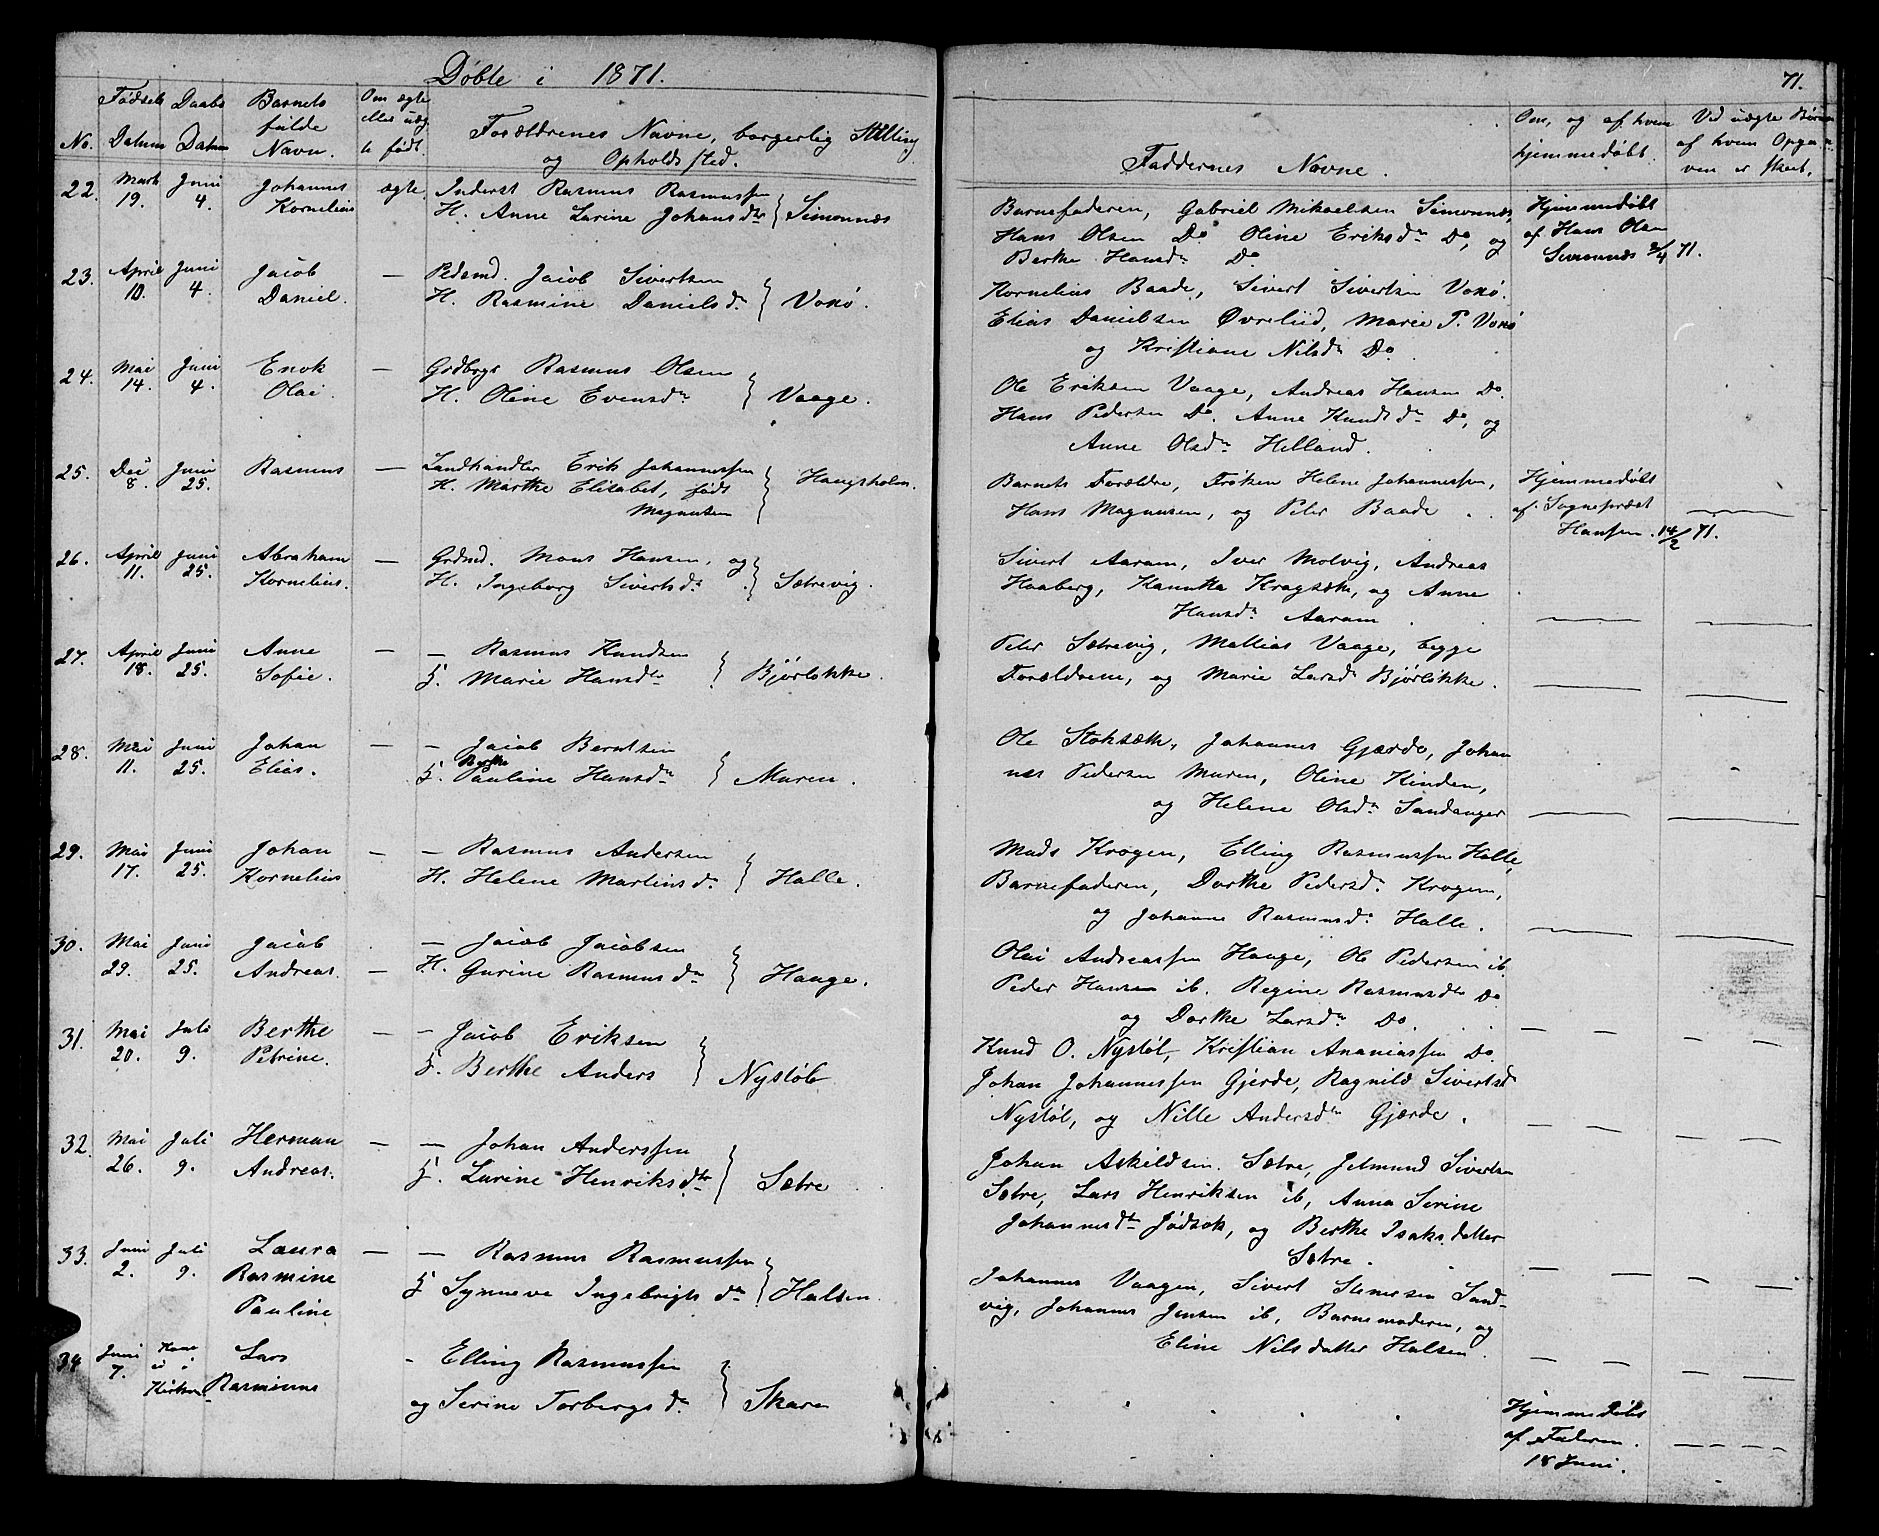 Døbte i 1871.
71.
No. Fødsels Datum Daabs Datum Barnets fulde Navn. Om ægte eller uægte født. Forældrenes Navne, borgerlig Stilling og Opholdssted. Faddernes Navne. Om, og af hvem hjemmedøbt. Ved uægte Børn af hvem Opgaven er skeet.
22. Marts 19. Juni 4. Johannes Kornelius ægte. Inderst Rasmus Rasmussen
H. Anne Larine Johansdtr } Simonnæs
Barnefaderen, Gabriel Mikaelsen Simonnæs,
Hans Olsen Do Oline Eriksdr Do, og
Berthe Hansdr Do
Hjemmedøbt
af Hans Olsen
Simonnæs 3/4 71.
23. April 10. Juni 4. Jacob Daniel. — Pdsmd. Jacob Sivertsen
H. Rasmine Danielsdr } Voxø.
Kornelius Baade, Sivert Sivertsen Voxø.
Elias Danielsen Øvreliid, Marie P. Voxø
og Kristiane Nilsdr Do.
24. Mai 14. Juni 4. Enok Olai. — Grdbrgr Rasmus Olsen
H. Oline Evensdr } Vaage.
Ole Eriksen Vaage, Andreas Hansen Do.
Hans Pedersen Do. Anne Knudsdr Do, og
Anne Olsdr Helland.
25. Dec 8. Juni 25. Rasmus — Landhandler Erik Johannessen
H. Marthe Elisabet, født
Magnusen } Haugsholm.
Barnets Forældre, Frøken Helene Johannessen,
Hans Magnusen, og Peter Baade.
Hjemmedøbt
af Sognepræst
Hansen. 14/2 71.
26. April 11. Juni 25. Abraham Kornelius. — Grdmd. Mons Hansen, og
H. Ingeborg Sivertsdr } Sætrevig.
Sivert Aaram, Iver Molvig, Andreas
Haaberg, Kanutta Kragsæth, og Anne
Hansdr Aaram
27. April 18. Juni 25. Anne Sofie. — — Rasmus Knudsen
H. Marie Hansdtr } Bjørløkke.
Peter Sætrevig, Mathias Vaage, begge
Forældrene, og Marie Larsdr Bjørløkke.
28. Mai 11. Juni 25. Johan Elias. — — Jacob Berntsen
Berthe
H. Pauline Hansdr } Muren.
Ole Stoksæth, Johannes Gjærde, Johan
nes Pedersen Muren, Oline Kinden,
og Helene Olsdr Sandanger
29. Mai 17. Juni 25. Johan Kornelius — — Rasmus Andersen
H. Helene Martinsdr } Halle.
Mads Krogen, Elling Rasmussen Halle,
Barnefaderen, Dorthe Pedersdr Krogen,
og Johanne Rasmusdr Halle.
30. Mai 29. Juni 25. Jacob Andreas. — — Jacob Jacobsen
H. Gurine Rasmusdr } Hauge.
Olai Andreassen Hauge, Ole Pedersen ib.
Peder Hansen ib. Regine Rasmusdtr Do
og Dorthe Larsdr Do.
31. Mai 20. Juli 9. Berthe Petrine. — — Jacob Eriksen
H. Berthe Anders } Nystøl
Knud O. Nystøl, Kristian Ananiassen Do.
Johan Johannessen Gjerde, Ragnild Sivertsdr
Nystøl, og Nille Andersdtr Gjærde.
32. Mai 26. Juli 9. Herman Andreas. — — Johan Anderssen
H. Larine Henriksdtr } Sætre
Johan Askildsen. Sætre, Jetmund Sivertsen
Sætre, Lars Henriksen ib, Anna Serine
Johannesdtr Jødsok, og Berthe Isaksdatter
Sætre.
33. Juni 2. Juli 9. Laura Rasmine Pauline — — Rasmus Rasmussen
H Synneve Ingebrigtsdr } Halsen.
Johannes Vaagen, Sivert Stenersen Sand-
vig, Johannes Jensen ib, Barnemoderen, og
Eline Nilsdatter Halsen.
34 Juni 7. Kom ei i Kirken Lars Rasminus - Elling Rasmussen
og Serine Torbergsdr } Skare
Hjemmedøbt
af Faderen.
18 Juni.